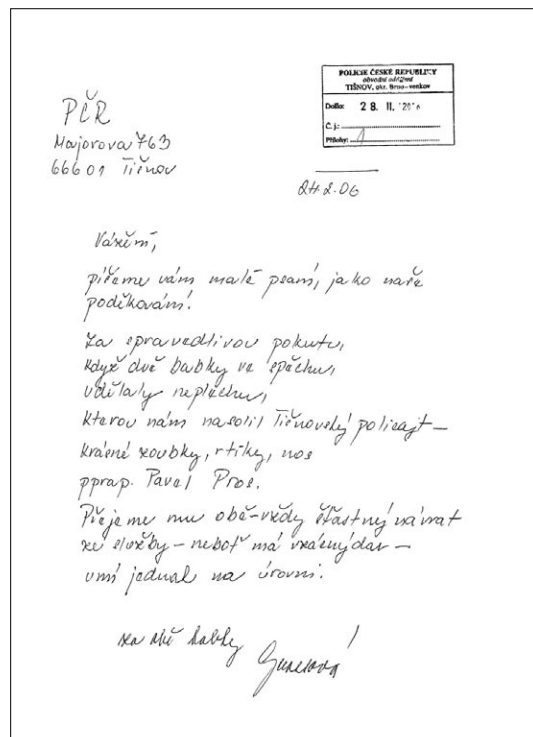 POLICIE ČESKÉ REPUBLIKY
obvodní oddělení
TIŠNOV, okr. Brno-venkov
Došlo: 28. II. 2006
Č.j.:
Přílohy:
PČR
Majorova 763
66601 Tišnov
24.2.06
Vážení,
píšeme vám malé psaní, jako naše
poděkování.
Za spravedlivou pokutu,
když dvě babky ve spěchu,
udělaly neplechu,
kterou nám nasolil Tišnovský policajt –
krásné zoubky, rtíky, nos
pprap. Pavel Pros.
Přejeme mu obě-vždy šťastný návrat
ze služby – neboť má vzácný dar –
umí jednat na úrovni.
za obě babky